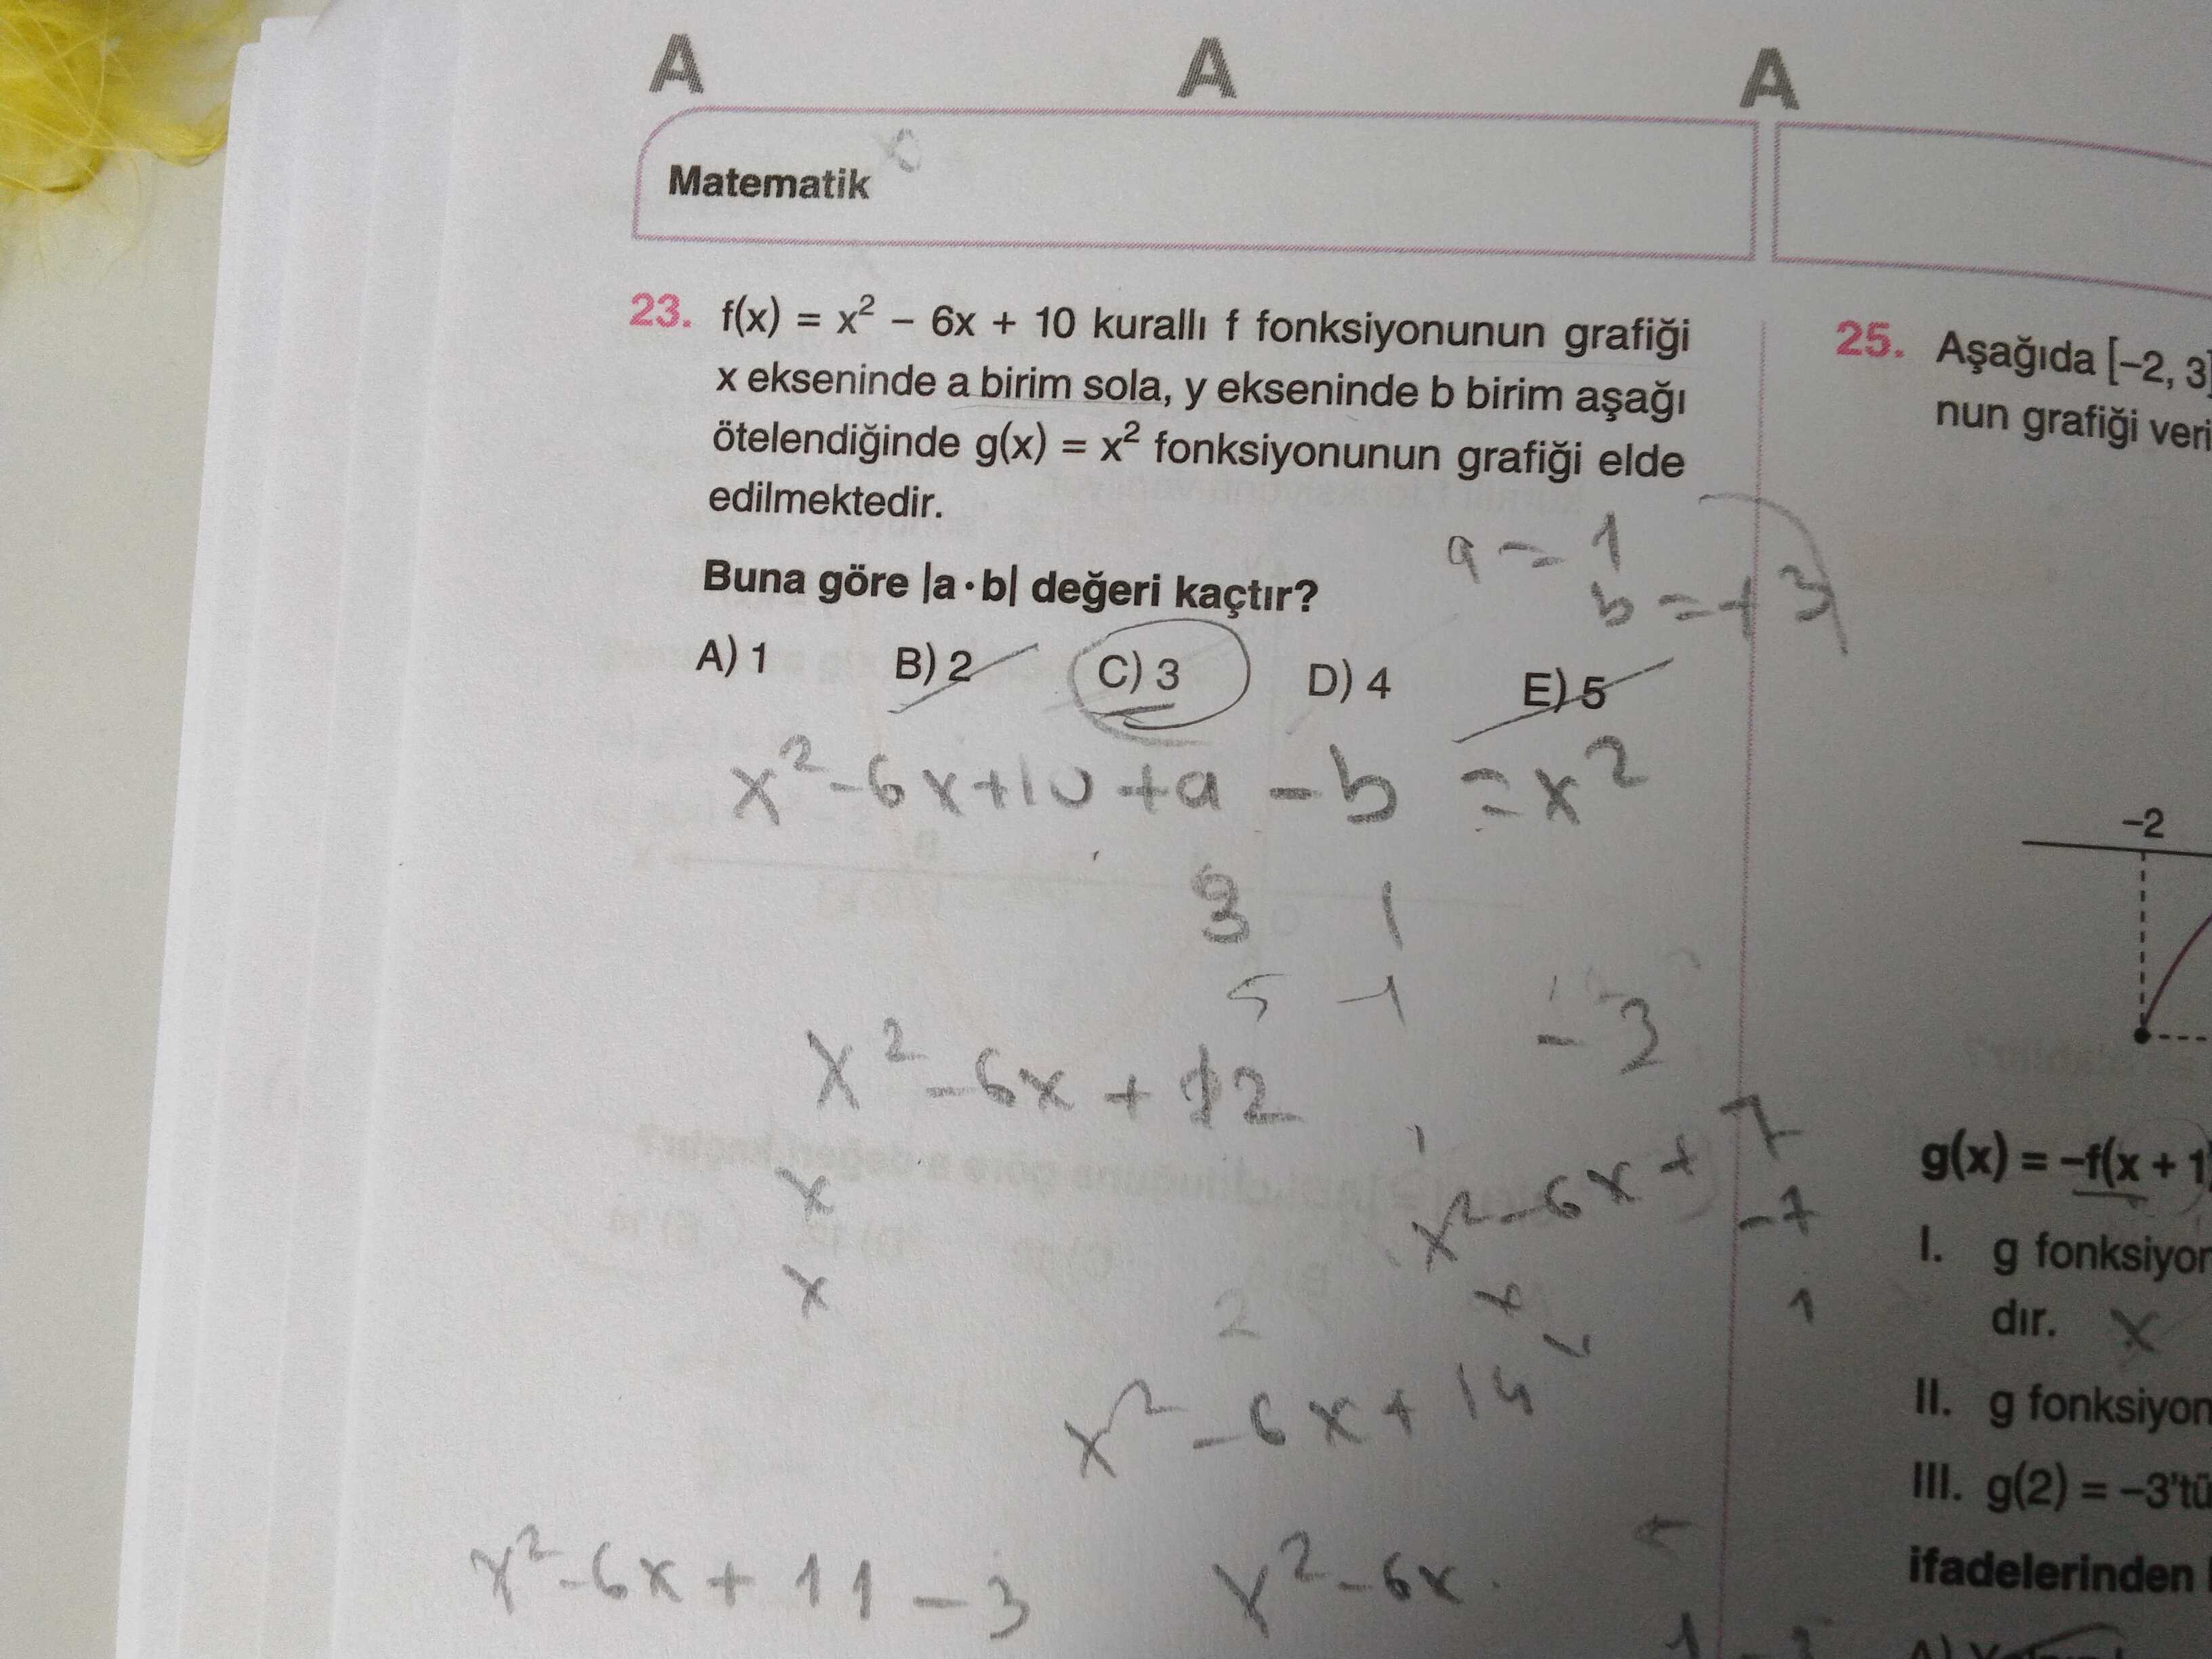 A A A
Matematik
23. f(x) = x² – 6x + 10 kurallı f fonksiyonunun grafiği
x ekseninde a birim sola, y ekseninde b birim aşağı
ötelendiğinde g(x) = x² fonksiyonunun grafiği elde
edilmektedir.
a = 1
b = +3
Buna göre |a · b| değeri kaçtır?
A) 1 B) 2 C) 3 D) 4 E) 5
x² - 6x + 10 + a - b = x²
3 1
5 -1
- 3
x² - 6x + 12
x
x
x² - 6x + 7
-7
x
1
2
x² - 6x + 14
x² - 6x + 11 - 3
x² - 6x
25. Aşağıda [–2, 3]
nun grafiği veri
–2
g(x) = –f(x + 1)
I. g fonksiyon
dır. x
II. g fonksiyon
III. g(2) = –3'tü
ifadelerinden